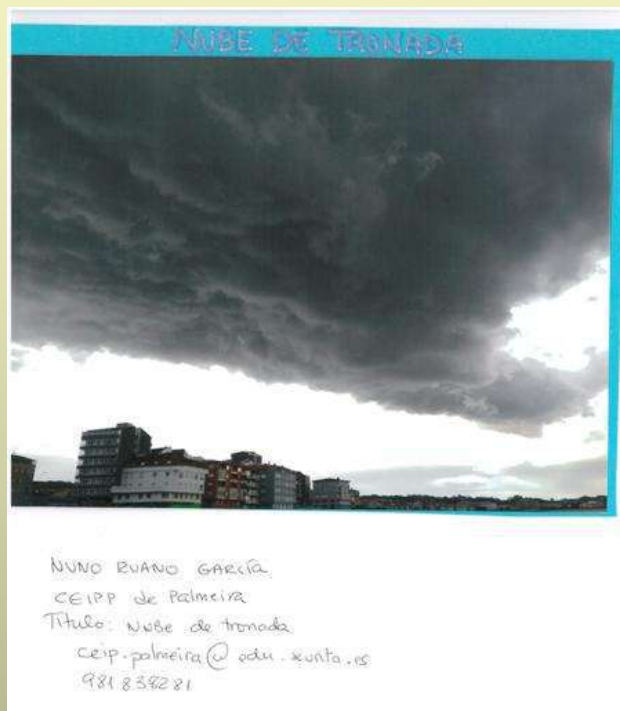 NUBE DE TRONADA
NUNO RUANO GARCÍA
CEIPP de Palmeira
Título: Nube de tronada
ceip.palmeira@edu.xunta.es
981838281